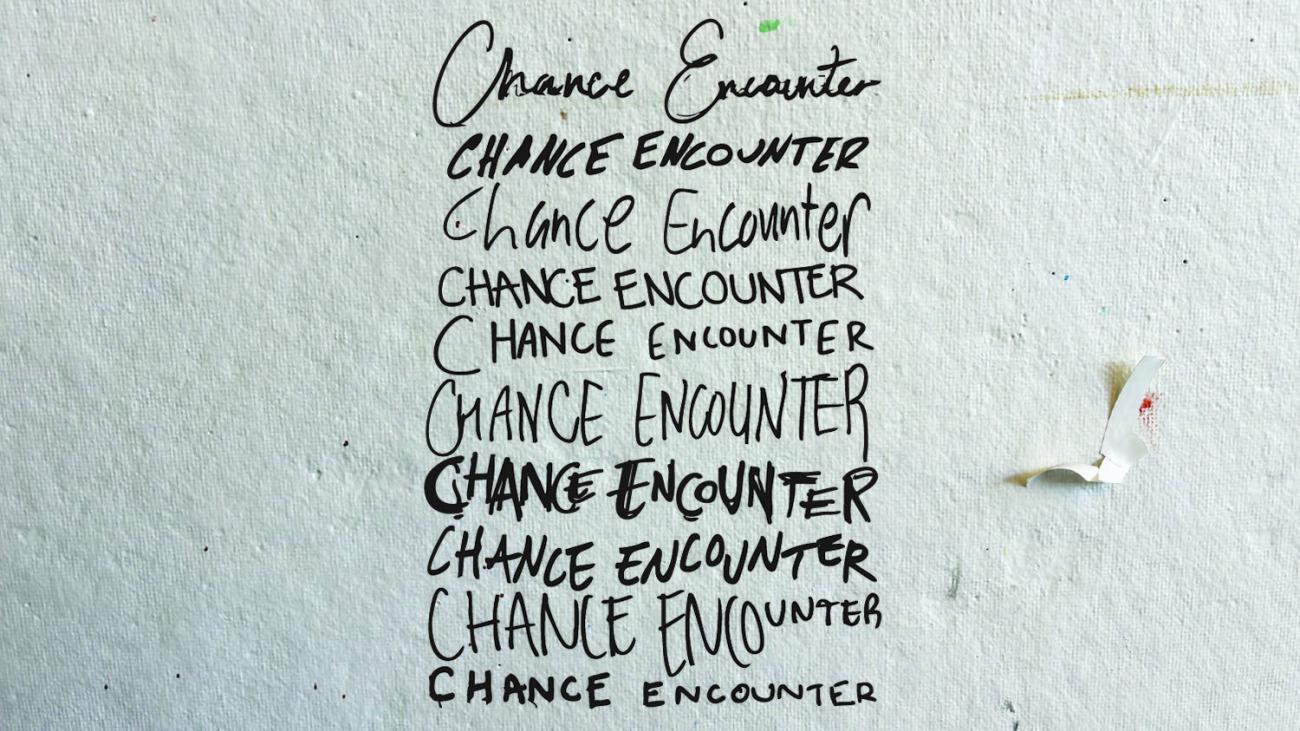 Chance Encounter
CHANCE ENCOUNTER
Chance Encounter
CHANCE ENCOUNTER
CHANCE ENCOUNTER
CHANCE ENCOUNTER
CHANCE ENCOUNTER
CHANCE ENCOUNTER
CHANCE ENCOUNTER
CHANCE ENCOUNTER